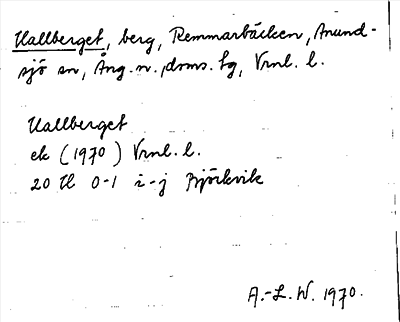 Kallberget, berg, Remmarbäcken, Anund-
sjö sn, Ång. n., doms. tg, Vrnl. l.
Kallberget
ek (1970) Vrnl. l.
20 H 0-1 i-j Björkvik
A.-L. W. 1970.